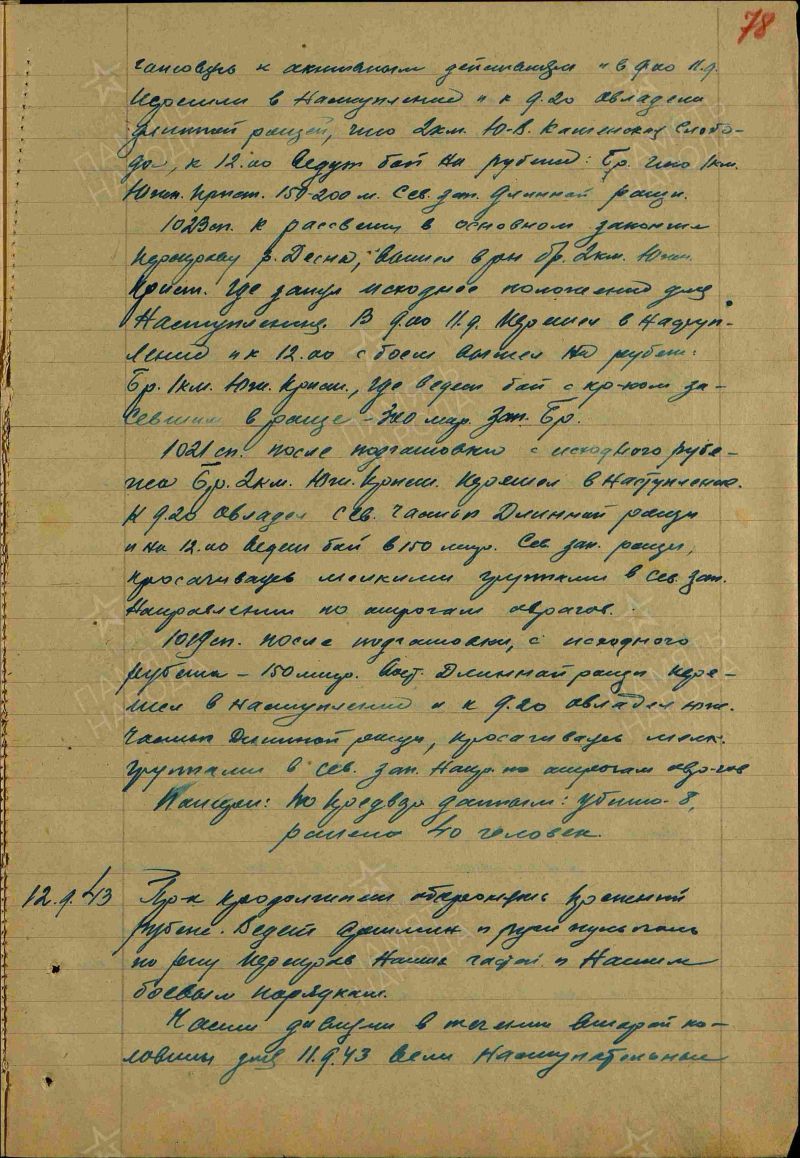 78
готовясь к активным действиям и в 9.00 11.9.
перешли в наступление и к 9.20 овладели
длинной рощей, что 2км. Ю-В. Каменской Слобо-
ды, к 12.00 ведут бой на рубеже: Бр. что 1км.
Южн. Прист. 150-200 м. Сев. зап. длинной рощи.
1023сп. к рассвету в основном закончил
переправу р. Десна, вышел в рн бр. 2км. Южн.
Прист. где занял исходное положение для
наступления. В 9.00 11.9. перешел в наступ-
ление и к 12.00 с боем вышел на рубеж:
Бр. 1км. Юж. Прист., где ведет бой с пр-ком за-
севшим в роще - зап. Бр.
1021сп. после подготовки с исходного рубе-
жа Бр. 2км. Юж. Прист. перешел в наступление.
К 9.20 овладел Сев. частью Длинной рощи
и на 12.00 ведет бой в 150 метр. Сев. зап. рощи,
просачиваясь мелкими группами в Сев. зап.
направлении по отрогам оврагов.
1019сп. после подготовки, с исходного
рубежа - 150 метр. Вост. Длинной рощи пере-
шел в наступление и к 9.20 овладел юж.
частью Длинной рощи, просачиваясь мелк.
группами в Сев. зап. напр. по отрогам овр-гов
Потери: По предвар. данным: убито - 8,
ранено 40 человек.
12.9.43 Пр-к продолжает оборонять прежний
рубеж. Ведет и руж. пул. огонь
по р-ну переправ наших частей и нашим
боевым порядкам.
Части дивизии в течении второй по-
ловины дня 11.9.43 вели наступательные
ПАМЯТЬ
НАРОДА